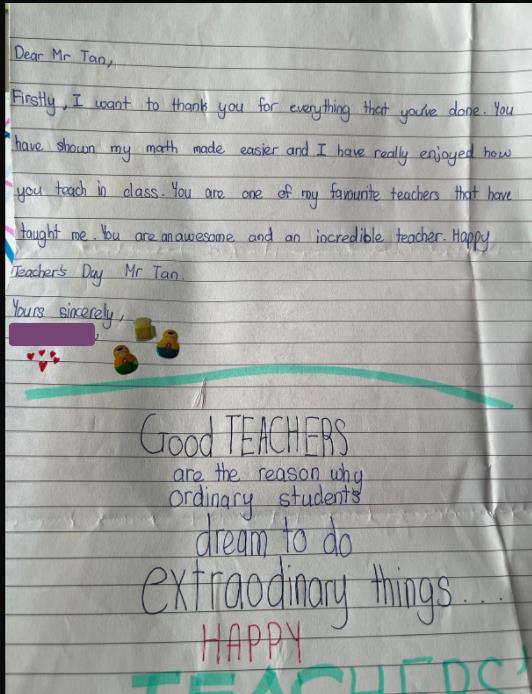 Dear Mr Tan,
Firstly, I want to thank you for everything that you've done. You
have shown my math made easier and I have really enjoyed how
you teach in class. You are one of my favourite teachers that have
taught me. You are an awesome and an incredible teacher. Happy
Teacher's Day Mr Tan.
Yours sincerely,
Good TEACHERS
are the reason why
ordinary students
dream to do
extraodinary things...
HAPPY
TEACHERS'